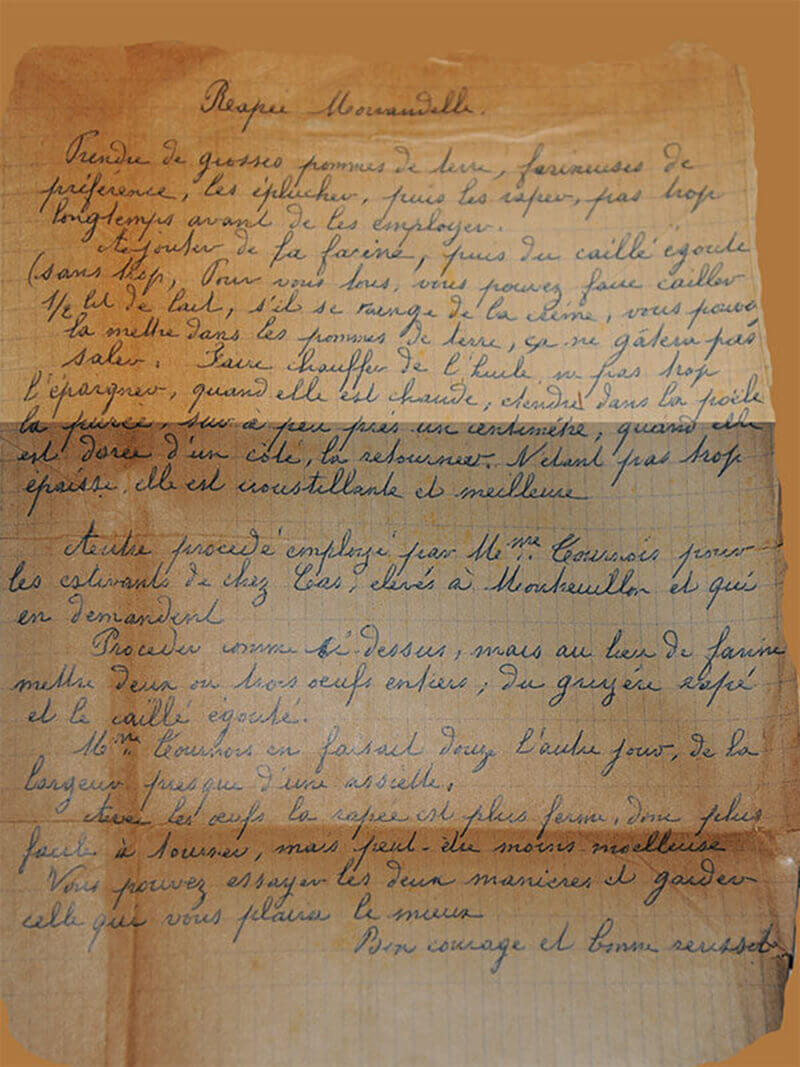 Rapée Morvandelle.
Prendre de grosses pommes de terre, farineuses de
préférence, les éplucher, puis les raper, pas trop
longtemps avant de les employer.
Ajouter de la farine, puis du caillé égouté
(sans trop, Pour vous tous, vous pouvez faire cailler
1/2 lit de lait, s'il se range de la crème, vous pouvez
la mettre dans les pommes de terre, ça ne gâtera pas
saler. Faire chauffer de l'huile, n pas trop
l'épargner, quand elle est chaude, étendre dans la poële
la purée, sur à peu près un centimètre, quand elle
est dorée d'un côté, la retourner. N'étant pas trop
épaisse, elle est croustillante et meilleure
Autre procédé employé par Mme. Tournois pour
les estivants de chez Cas, élevés à Montreuillon et qui
en demandent
Procéder comme ci-dessus, mais au lieu de farine
mettre deux ou trois oeufs entiers, du gruyère rapé
et le caillé égouté.
Mme. Tournois en faisait douze l'autre jour, de la
largeur presque d'une assiette.
Avec les œufs la rapée est plus ferme, donc plus
facile à tourner, mais peut-être moins moelleuse
Vous pouvez essayer les deux manières et garder
celle qui vous plaira le mieux
Bon courage et bonne réussite